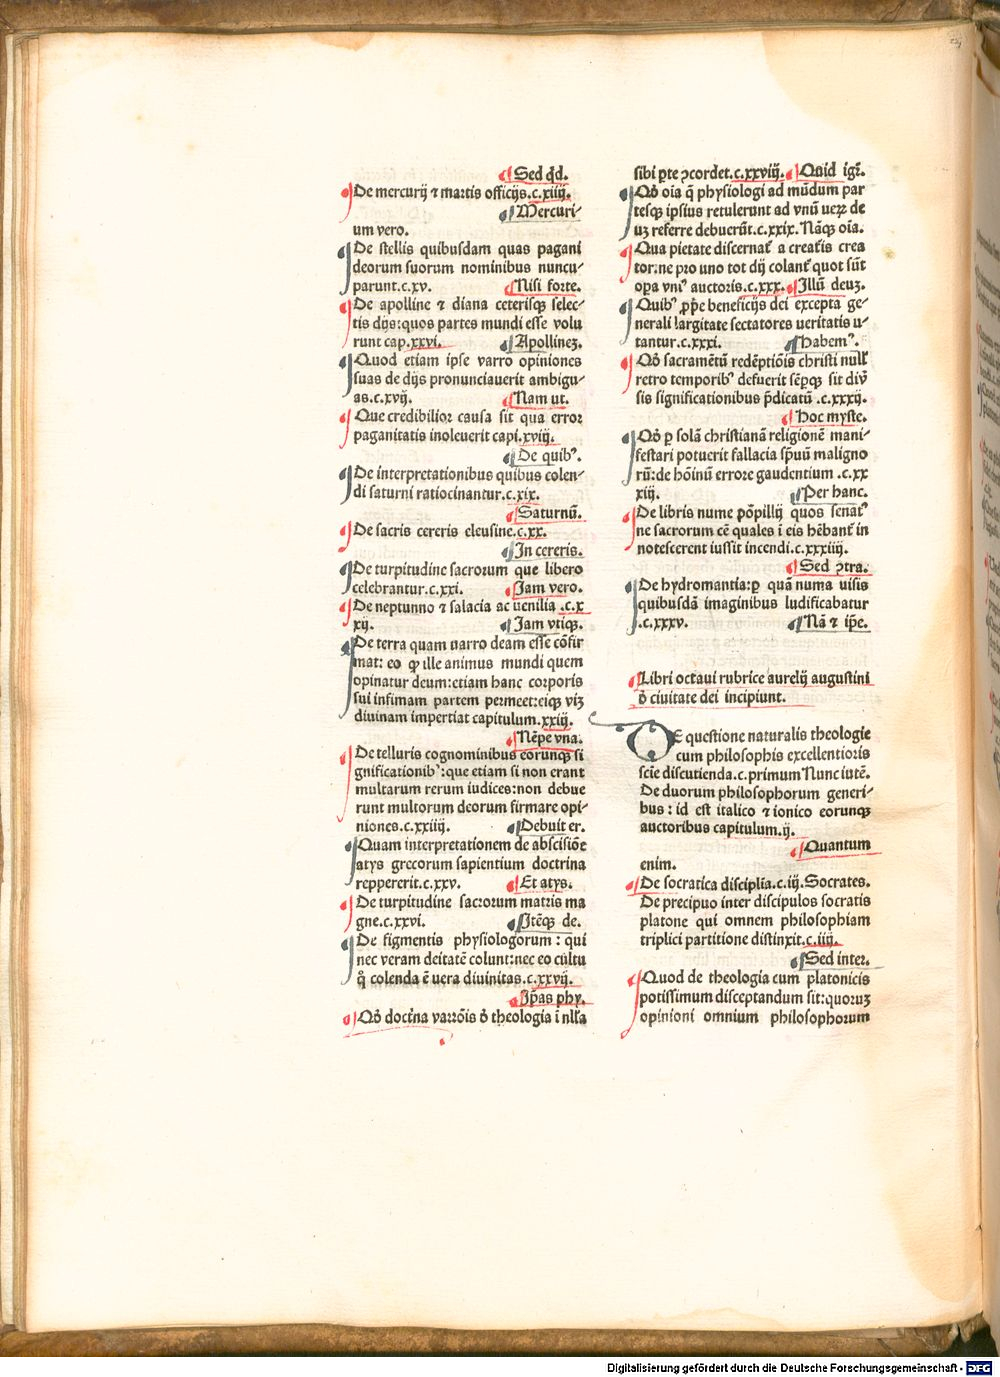 Sed qd.
De mercurij ⁊ martis officijs.c.xiiij.
Mercuri⸗
um vero.
De stellis quibusdam quas pagani
deorum suorum nominibus nuncu⸗
parunt.c.xv. Nisi forte.
De apolline ⁊ diana ceterisqꝫ selec⸗
tis dijs:quos partes mundi esse volu
runt cap.xxvi. Apollineꝫ.
Quod etiam ipse varro opiniones
suas de dijs pronunciauerit ambigu⸗
as.c.xvij. Nam ut.
Que credibilior causa sit qua error
paganitatis inoleuerit capi.xviij.
De quibꝰ.
De interpretationibus quibus colen⸗
di saturni ratiocinantur.c.xix.
Saturnū.
De sacris cereris eleusine.c.xx.
In cereris.
De turpitudine sacrorum que libero
celebrantur.c.xxi. Jam vero.
De neptunno ⁊ salacia ac uenilia .c.x
xij. Jam vtiqꝫ.
De terra quam varro deam esse cōfir
mat: eo ꝙ ille animus mundi quem
opinatur deum:etiam hanc corporis
sui infimam partem permeet:eiqꝫ viꝫ
diuinam impertiat capitulum.xxiij.
Nēpe vna.
De telluris cognominibus eorunqꝫ si
gnificationibꝰ:que etiam si non erant
multarum rerum iudices:non debue
runt multorum deorum firmare opi⸗
niones.c.xxiiij. Debuit er.
Quam interpretationem de abscisiōe
atys grecorum sapientium doctrina
reppererit.c.xxv. Et atys.
De turpitudine sacrorum matris ma
gne.c.xxvi. Jtēqꝫ de.
De figmentis physiologorum : qui
nec veram deitatē colunt:nec eo cultu
q̄ colenda ē vera diuinitas.c.xxvij.
Jp̄as phy.
Qȭ docīna varrōis ꝺ̄ theologia ī nll'a
sibi ꝑte ↄcordet.c.xxviij. Quid igr̄.
Qȭ oīa q̄ physiologi ad mūdum par
tesqꝫ ipsius retulerunt ad vnū ueꝝ de
uꝫ referre debuerūt.c.xxix. Nāqꝫ oīa.
Qua pietate discernat̄ a creat̄is crea
tor:ne pro uno tot dij colant̄ quot sūt
oꝑa vniꝰ auctoris.c.xxx. Jllū deuꝫ.
Quibꝰ ꝓp̄e beneficijs dei excepta ge⸗
nerali largitate sectatores ueritatis u⸗
tantur.c.xxxi. Habemꝰ.
Qȭ sacramētū redēptiōis christi null'
retro temporibꝰ defuerit sēpqꝫ sit diu̅
sis significationibus p̄dicatū .c.xxxij.
Hoc myste.
Qȭ ꝑ solā christianā religionē mani⸗
festari potuerit fallacia sp̄uū maligno
rū:de hōinū errore gaudentium .c.xx
xiij. Per hanc.
De libris nume pōpilij quos senatꝰ
ne sacrorum cē quales ī eis hēbant̄ in
notescerent iussit incendi.c.xxxiiij.
Sed ↄtra.
De hydromantia:ꝑ quā numa uisis
quibusdā imaginibus ludificabatur
.c.xxxv. Nā ⁊ ip̄e.
Libri octaui rubrice aurelij augustini
ꝺ̄ ciuitate dei incipiunt.
DE questione naturalis theologie
cum philosophis excellentioris
scīe discutienda.c.primum Nunc īntē.
De duorum philosophorum generi⸗
bus : id est italico ⁊ ionico eorunqꝫ
auctoribus capitulum.ij.
Quantum
enim.
De socratica disciplīa.c.iij. Socrates.
De precipuo inter discipulos socratis
platone qui omnem philosophiam
triplici partitione distinxit.c.iiij.
Sed inter.
Quod de theologia cum platonicis
potissimum disceptandum sit:quoruꝫ
opinioni omnium philosophorum
Digitalisierung gefördert durch die Deutsche Forschungsgemeinschaft - DFG